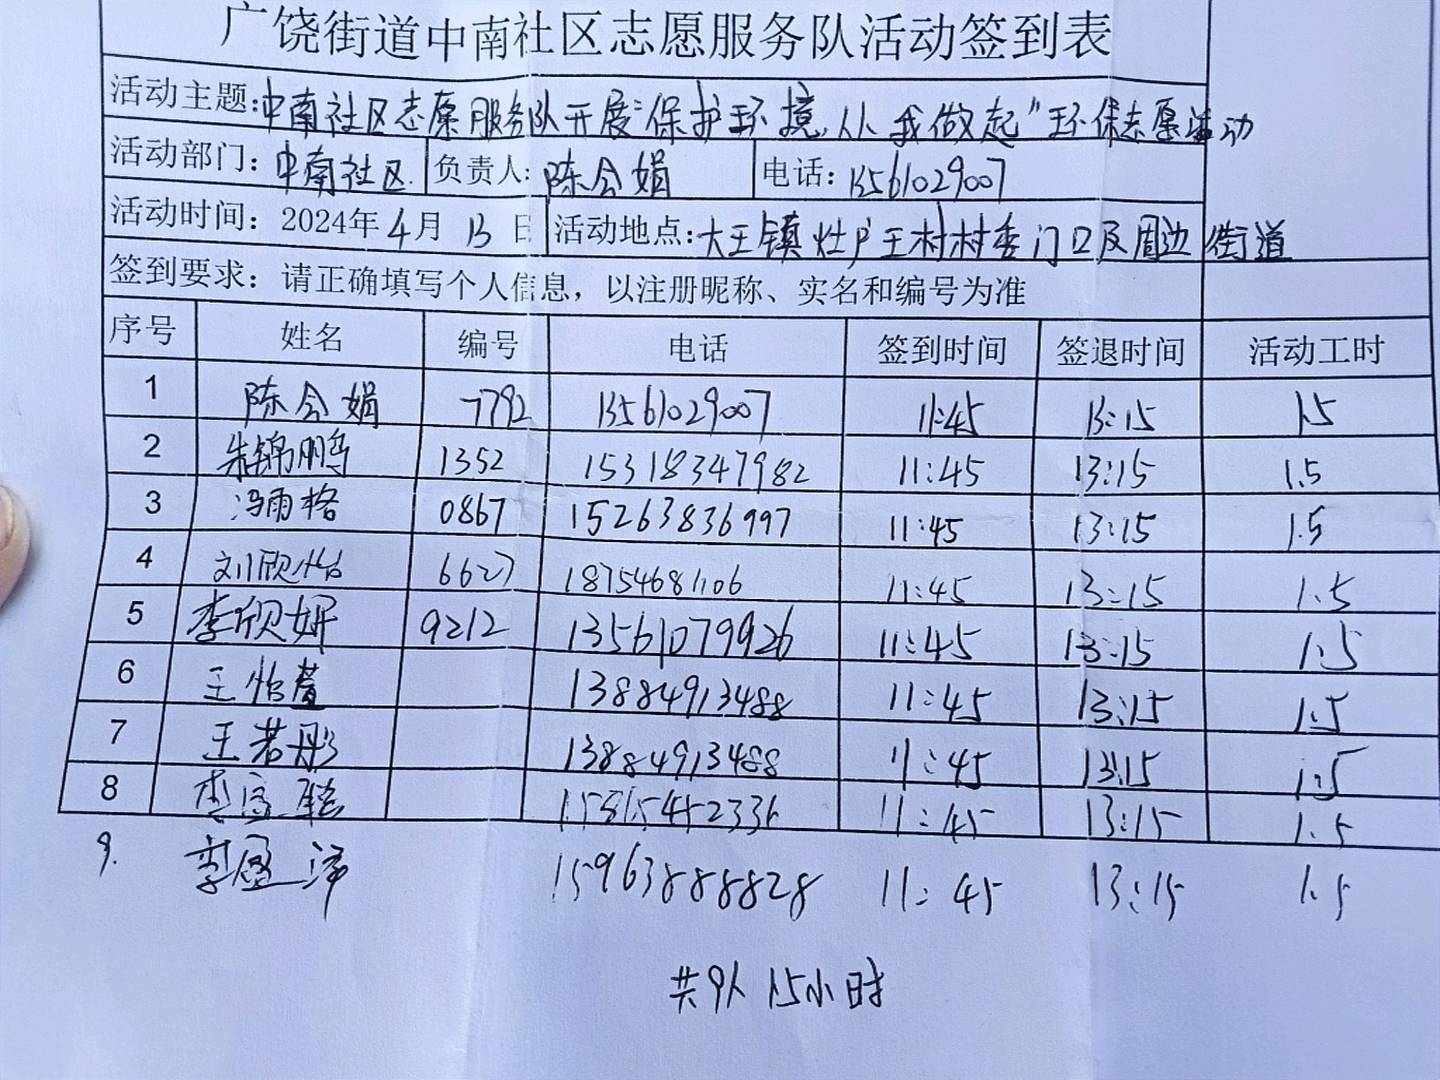 广饶街道中南社区志愿服务队活动签到表
活动主题:中南社区志愿服务队开展“保护环境、从我做起”环保志愿活动
活动部门: 中南社区 负责人: 陈会娟 电话: 13561029007
活动时间: 2024年4月13日 活动地点: 大王镇灶户王村村委门口及周边街道
签到要求: 请正确填写个人信息，以注册昵称、实名和编号为准
序号 姓名 编号 电话 签到时间 签退时间 活动工时
1 陈会娟 7792 13561029007 11:45 13:15 1.5
2 朱锦鹏 1352 15318347982 11:45 13:15 1.5
3 冯雨格 0867 15263836997 11:45 13:15 1.5
4 刘欣怡 6627 18754681106 11:45 13:15 1.5
5 李欣妍 9212 13561079926 11:45 13:15 1.5
6 王怡萱 13884913488 11:45 13:15 1.5
7 王若彤 13884913488 11:45 13:15 1.5
8 李 15865452336 11:45 13:15 1.5
9. 李盈 15963888828 11:45 13:15 1.5
共9人 1.5小时